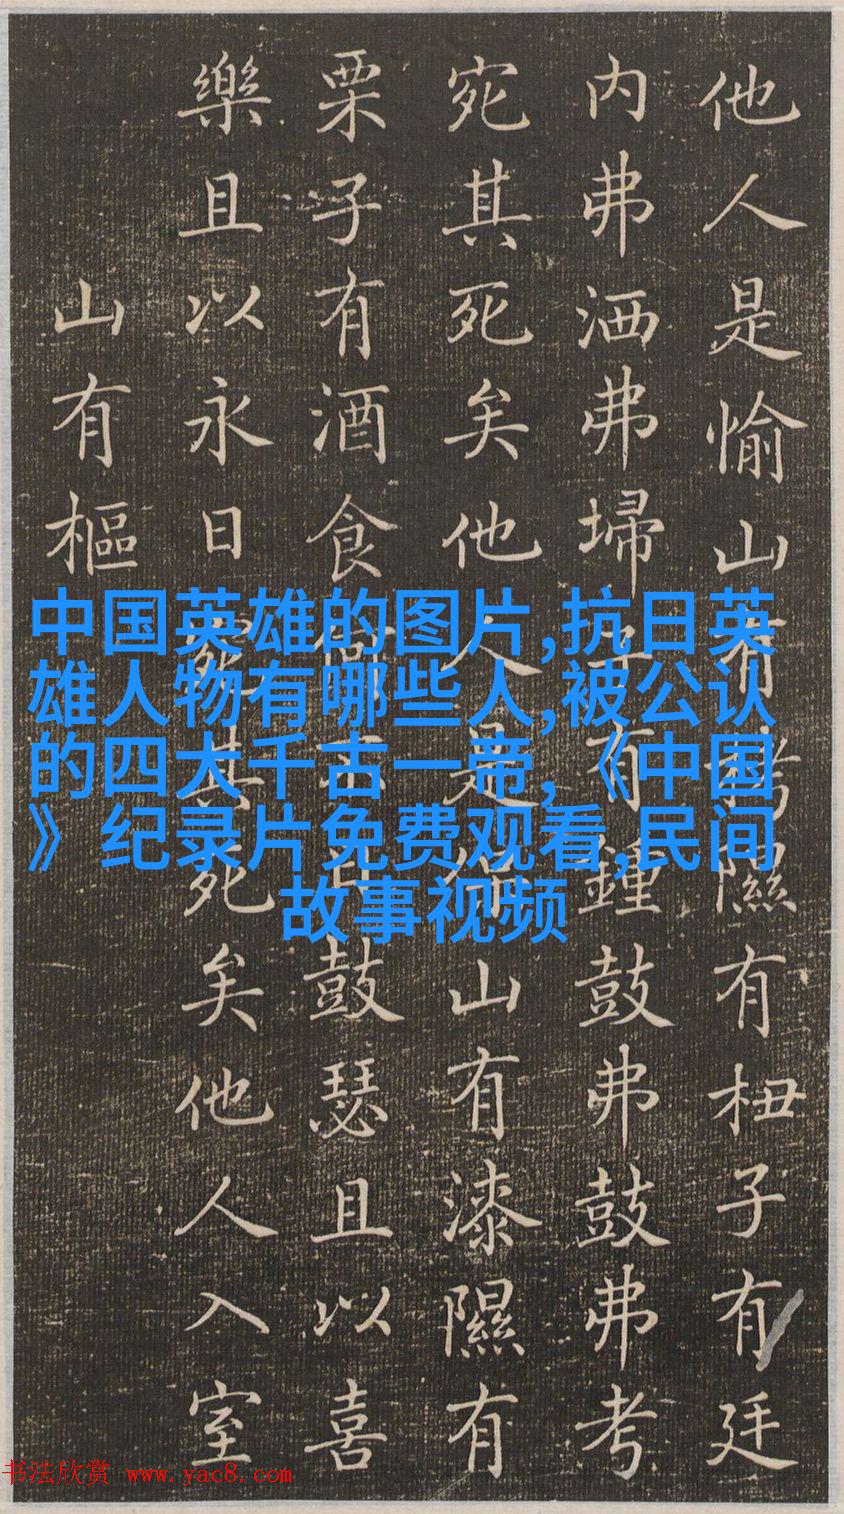 他人是愉山有栲隰有杻子有廷
内弗洒弗埽子有鍾鼓弗鼓弗考
宛其死矣他人是愉山有漆隰有
栗子有酒食何不日鼓瑟且以喜
樂且以永日宛其死矣他人入室
山有樞
中国英雄的图片,抗日英
雄人物有哪些人,被公认
的四大千古一帝,《中国
》纪录片免费观看,民间
故事视频
书法欣赏 www.yac8.com